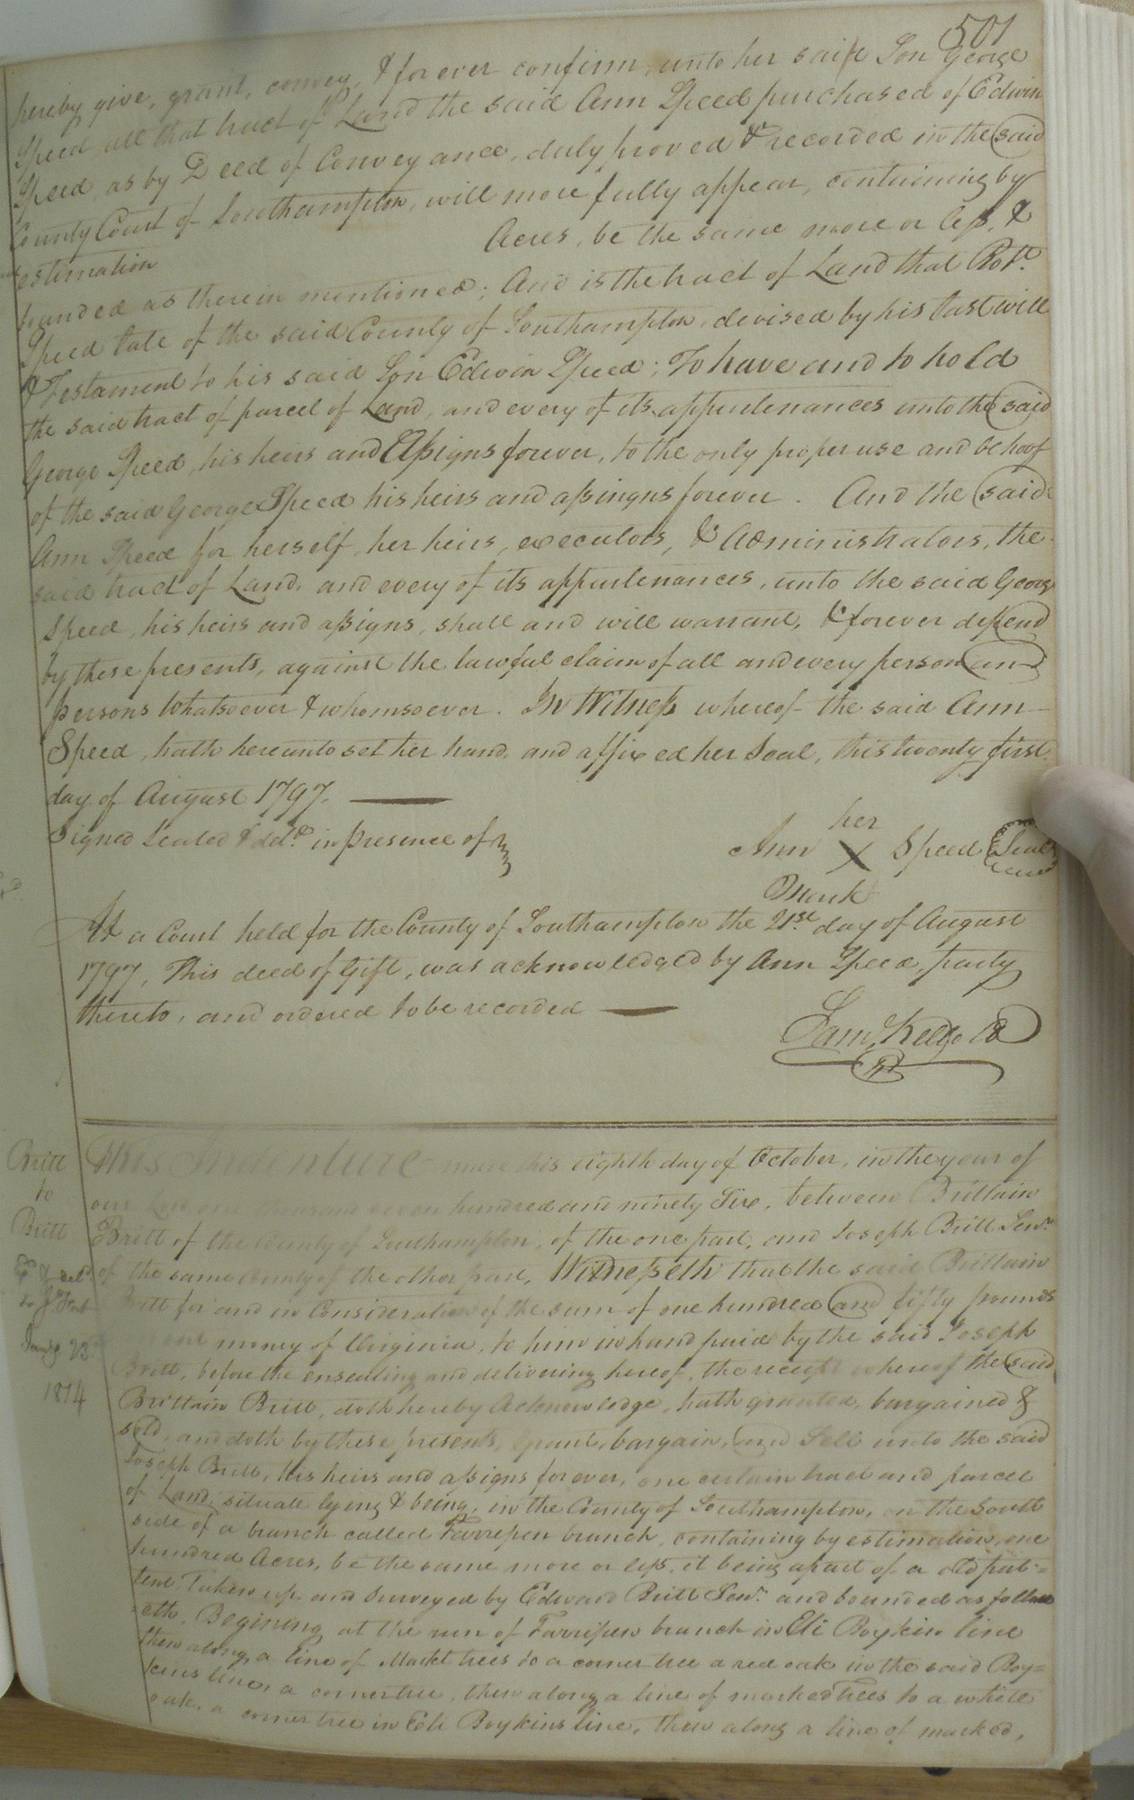 501
hereby give, grant, convey, & forever confirm, unto her said Son George
Speed all that tract of Land the said Ann Speed purchased of Edwin
Speed, as by Deed of Conveyance, duly proved & recorded in the said
County Court of Southampton, will more fully appear, containing by
estimation Acres, be the same more or less, &
bounded as therein mentioned; And is the tract of Land that Robt.
Speed late of the said County of Southampton, devised by his last will
& Testament to his said Son Edwin Speed; To have and to hold
the said tract of parcel of Land, and every of its appurtenances unto the said
George Speed, his heirs and Assigns forever, to the only proper use and behoof
of the said George Speed his heirs and assingns forever. And the said
Ann Speed for herself, her heirs, executors, & Administrators, the
said tract of Land, and every of its appurtenances, unto the said George
Speed, his heirs and assigns, shall and will warrant, & forever defend
by these presents, against the lawful claim of all and every person and
persons Whatsoever & whomsoever. In Witness whereof the said Ann
Speed, hath hereunto set her hand, and affixed her Seal, this twenty first
day of August 1797.
Signed Sealed & deld. in presence of
her
Ann X Speed Seal
Mark
At a Court held for the County of Southampton the 21st. day of August
1797, This deed of Gift, was acknowledged by Ann Speed, party
thereto, and ordered to be recorded
Sam. Kello
Britt
to
Britt
1814
This Indenture made this eighth day of October, in the year of
our Lord one thousand seven hundred and ninety Six, between Brittain
Britt of the County of Southampton, of the one part, and Joseph Britt Senr.
of the same County of the other part, Witnesseth that the said Brittain
Britt for and in Consideration of the sum of one hundred and fifty pounds
money of Virginia, to him in hand paid by the said Joseph
Britt, before the ensealing and delivering hereof, the receipt whereof the said
Brittain Britt, doth hereby Acknowledge, hath granted, bargained &
sold, and doth by these presents, grant, bargain, and Sell unto the said
Joseph Britt, his heirs and assigns forever, one certain tract and parcel
of Land, situate lying & being, in the County of Southampton, on the South
side of a branch called Farrepen branch, containing by estimation, one
hundred Acres, be the same more or less, it being a part of a old pat-
tent Taken up and Surveyed by Edward Britt Senr. and bounded as follow
-eth. Begining at the run of Farripen branch in Eli Boykin line
then along a line of Markt trees to a corner tree a red oak in the said Boy=
kins line, a corner tree, then along a line of marked trees to a white
oak, a corner tree in Eli Boykins line, then along a line of marked,